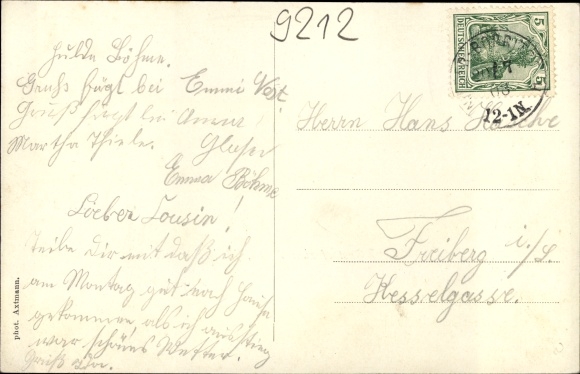 9212
Hulda Böhme.
Gruß fügt bei Emmi Vogt.
Gruß fügt bei Anna
Martha Thiele. Glaser
Emma Böhme
Lieber Cousin!
Teile Dir mit daß ich
am Montag gut nach Hause
gekommen als ich ausstieg
war schönes Wetter.
Gruß
phot. Axtmann.
5 5
DEUTSCHES REICH
12-1N.
Herrn Hans
Freiberg i./S.
Kesselgasse.